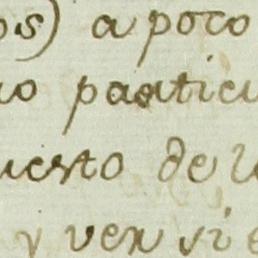 os) a poco
partic
uesto de l
y ver si e